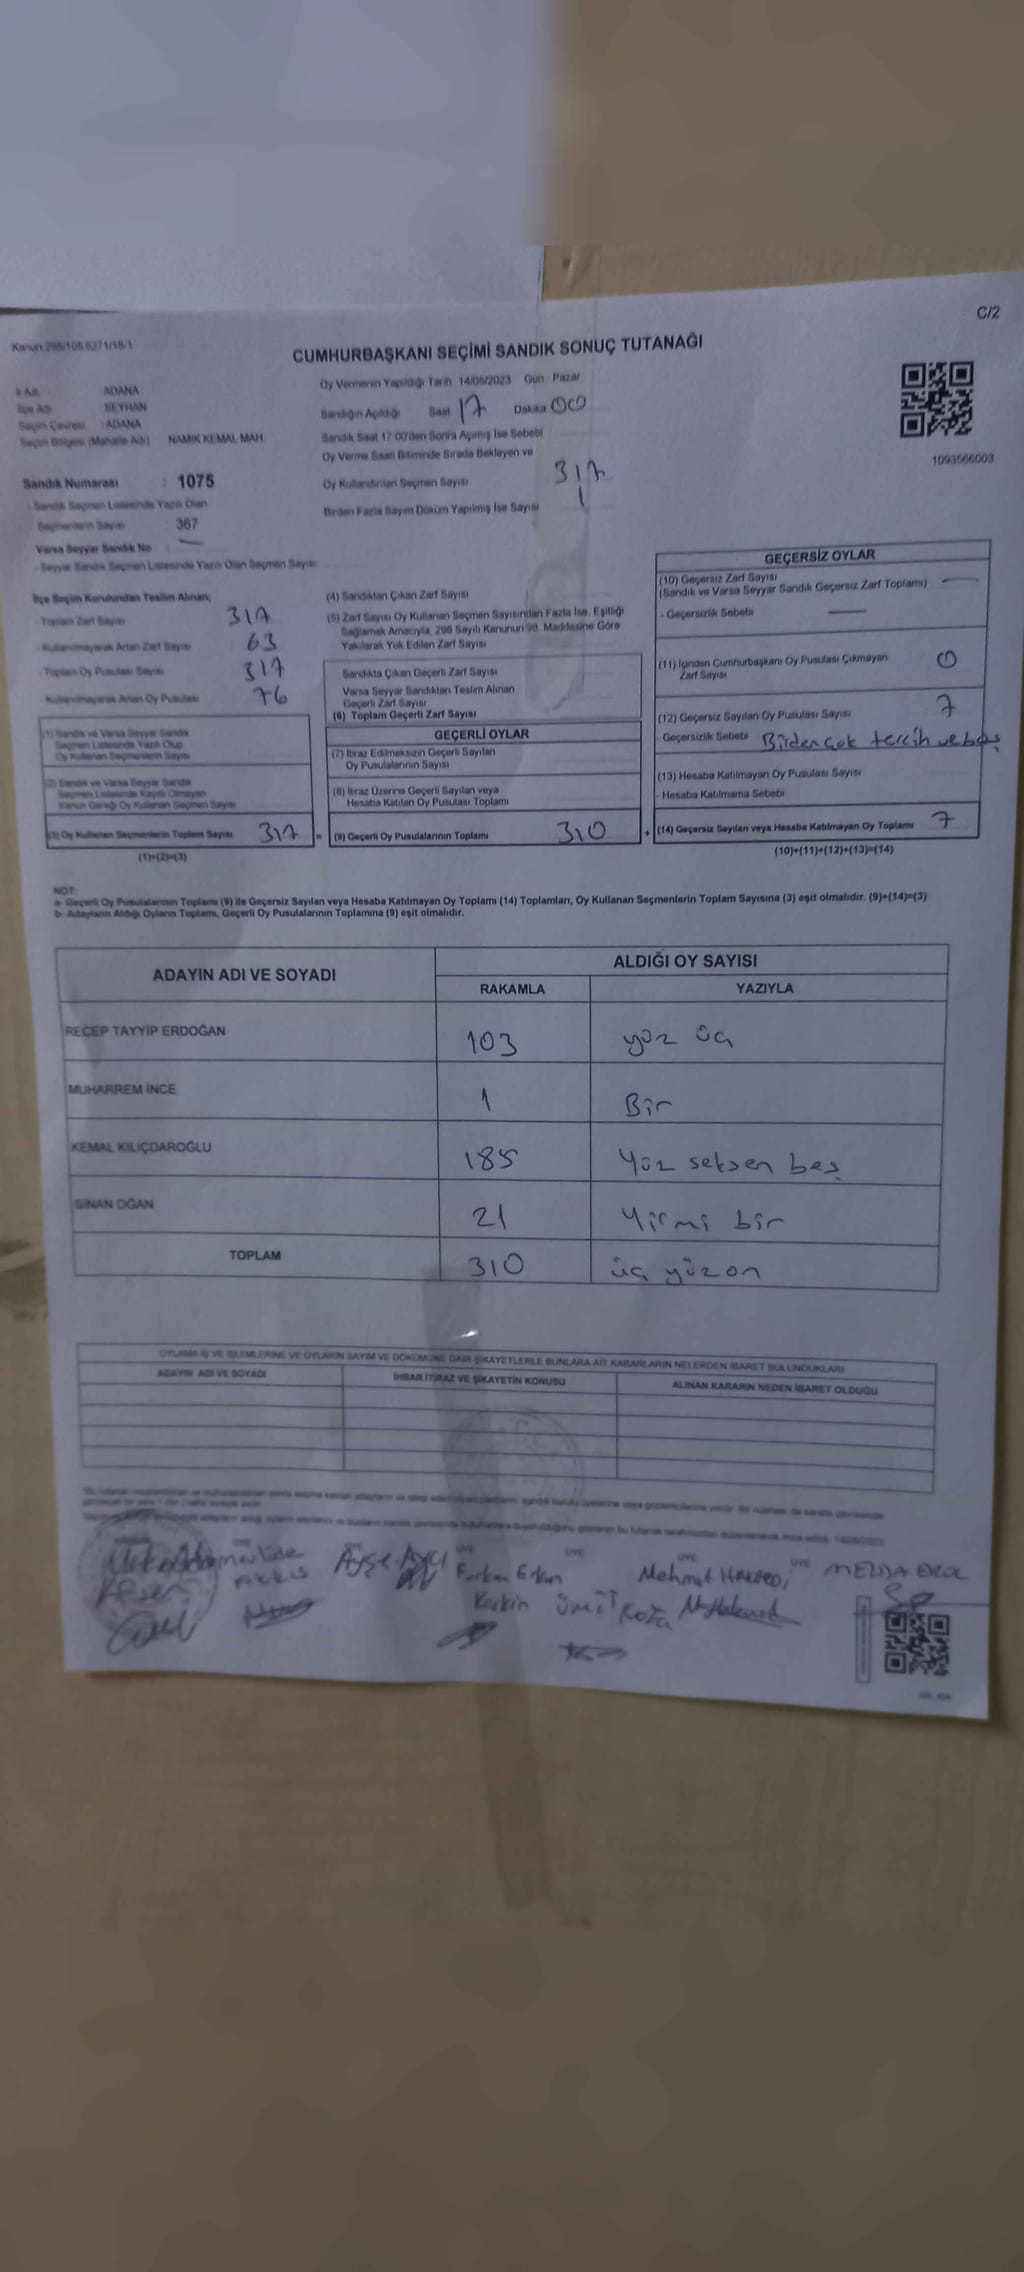 C/2
Kanun:298/105.6271/18-1
CUMHURBAŞKANI SEÇİMİ SANDIK SONUÇ TUTANAĞI
İl Adı : ADANA
İlçe Adı : SEYHAN
Seçim Çevresi : ADANA
Seçim Bölgesi (Mahalle Adı) NAMIK KEMAL MAH.
Sandık Numarası : 1075
- Sandık Seçmen Listesinde Yazılı Olan
Seçmenlerin Sayısı : 367
Varsa Seyyar Sandık No : —
- Seyyar Sandık Seçmen Listesinde Yazılı Olan Seçmen Sayısı
Oy Vermenin Yapıldığı Tarih 14/05/2023 Gün Pazar
Sandığın Açıldığı Saat 17 Dakika 00
Sandık Saat 17:00'den Sonra Açılmış İse Sebebi
Oy Verme Saati Bitiminde Sırada Bekleyen ve
Oy Kullandırılan Seçmen Sayısı 317
Birden Fazla Sayım Döküm Yapılmış İse Sayısı 1
1093566003
İlçe Seçim Kurulundan Teslim Alınan;
- Toplam Zarf Sayısı 317
- Kullanılmayarak Artan Zarf Sayısı 63
- Toplam Oy Pusulası Sayısı 317
- Kullanılmayarak Artan Oy Pusulası 76
(1) Sandık ve Varsa Seyyar Sandık
Seçmen Listesinde Yazılı Olup
Oy Kullanan Seçmenlerin Sayısı
(2) Sandık ve Varsa Seyyar Sandık
Seçmen Listesinde Kayıtlı Olmayan
Kanun Gereği Oy Kullanan Seçmen Sayısı
(3) Oy Kullanan Seçmenlerin Toplam Sayısı 317 =
(1)+(2)=(3)
(4) Sandıktan Çıkan Zarf Sayısı
(5) Zarf Sayısı Oy Kullanan Seçmen Sayısından Fazla İse, Eşitliği
Sağlamak Amacıyla, 298 Sayılı Kanunun 98. Maddesine Göre
Yakılarak Yok Edilen Zarf Sayısı
Sandıkta Çıkan Geçerli Zarf Sayısı
Varsa Seyyar Sandıktan Teslim Alınan
Geçerli Zarf Sayısı
(6) Toplam Geçerli Zarf Sayısı
GEÇERLİ OYLAR
(7) İtiraz Edilmeksizin Geçerli Sayılan
Oy Pusulalarının Sayısı
(8) İtiraz Üzerine Geçerli Sayılan veya
Hesaba Katılan Oy Pusulası Toplamı
(9) Geçerli Oy Pusulalarının Toplamı 310 +
GEÇERSİZ OYLAR
(10) Geçersiz Zarf Sayısı
(Sandık ve Varsa Seyyar Sandık Geçersiz Zarf Toplamı) —
- Geçersizlik Sebebi —
(11) İçinden Cumhurbaşkanı Oy Pusulası Çıkmayan
Zarf Sayısı 0
(12) Geçersiz Sayılan Oy Pusulası Sayısı 7
- Geçersizlik Sebebi Birden çok tercih ve boş
(13) Hesaba Katılmayan Oy Pusulası Sayısı
- Hesaba Katılmama Sebebi
(14) Geçersiz Sayılan veya Hesaba Katılmayan Oy Toplamı 7
(10)+(11)+(12)+(13)=(14)
NOT:
a- Geçerli Oy Pusulalarının Toplamı (9) ile Geçersiz Sayılan veya Hesaba Katılmayan Oy Toplamı (14) Toplamları, Oy Kullanan Seçmenlerin Toplam Sayısına (3) eşit olmalıdır. (9)+(14)=(3)
b- Adayların Aldığı Oyların Toplamı, Geçerli Oy Pusulalarının Toplamına (9) eşit olmalıdır.
ADAYIN ADI VE SOYADI ALDIĞI OY SAYISI
RAKAMLA YAZIYLA
RECEP TAYYİP ERDOĞAN 103 yüz üç
MUHARREM İNCE 1 Bir
KEMAL KILIÇDAROĞLU 185 Yüz seksen beş
SİNAN OĞAN 21 Yirmi bir
TOPLAM 310 üç yüz on
OYLAMA İŞ VE İŞLEMLERİNE VE OYLARIN SAYIM VE DÖKÜMÜNE DAİR ŞİKAYETLERLE BUNLARA AİT KARARLARIN NELERDEN İBARET BULUNDUKLARI
ADAYIN ADI VE SOYADI İHBAR İTİRAZ VE ŞİKAYETİN KONUSU ALINAN KARARIN NEDEN İBARET OLDUĞU
ÜYE ÜYE ÜYE ÜYE ÜYE
Ayşe Furkan Erkan Mehmet MELDA EROL
Keskin Ümit Koza